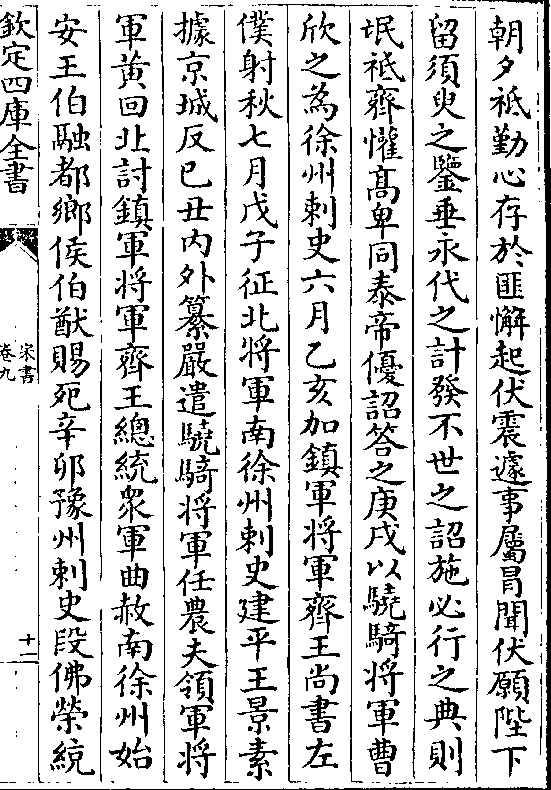 朝夕祗勤心存於匪懈起伏震遽事屬冒聞伏願陛下
留須臾之鑒垂永代之計發不世之詔施必行之典則
氓祗齊懽髙卑同泰帝優詔答之庚戌以驍騎将軍曹
欣之為徐州刺史六月乙亥加鎮軍将軍齊王尚書左
僕射秋七月戊子征北将軍南徐州刺史建平王景素
據京城反已丑内外纂嚴遣驍騎将軍任農夫領軍将
軍黄回北討鎮軍将軍齊王總統衆軍曲赦南徐州始
安王伯融都鄉侯伯猷賜死辛卯豫州刺史段佛榮統
欽定四庫全書
宋書
卷九
十二